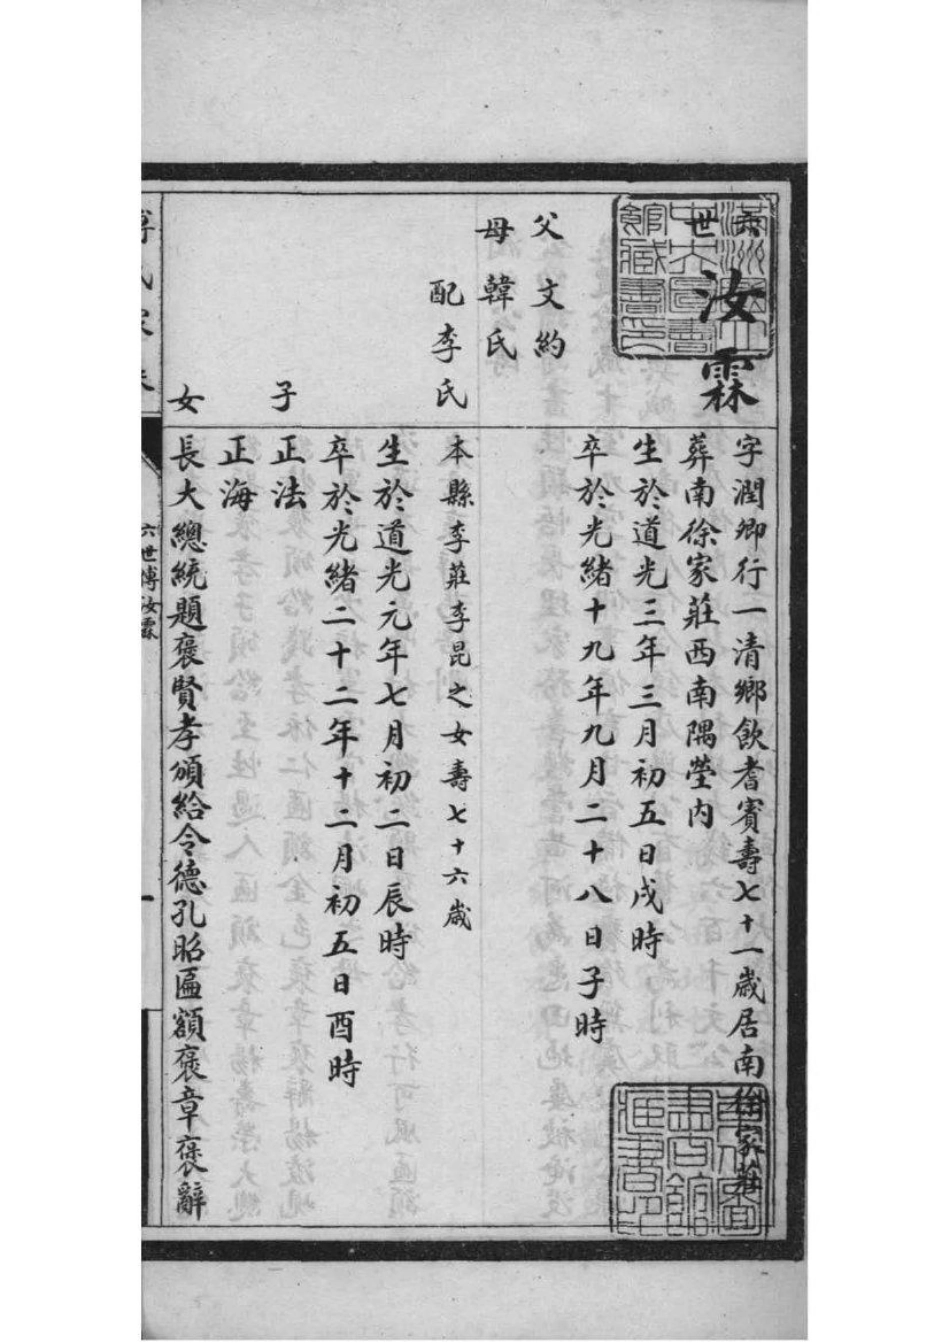 六世
汝霖
字潤卿行一清鄉飲耆賓壽七十一歲居南徐家莊
葬南徐家莊西南隅塋內
生於道光三年三月初五日戌時
卒於光緒十九年九月二十八日子時
父文約
母韓氏
配李氏
本縣李莊李昆之女壽七十六歲
生於道光元年七月初二日辰時
卒於光緒二十二年十二月初五日酉時
子
正法
正海
女
長大總統題褒賢孝頒給令德孔昭匾額褒章褒辭
六世傅汝霖
一